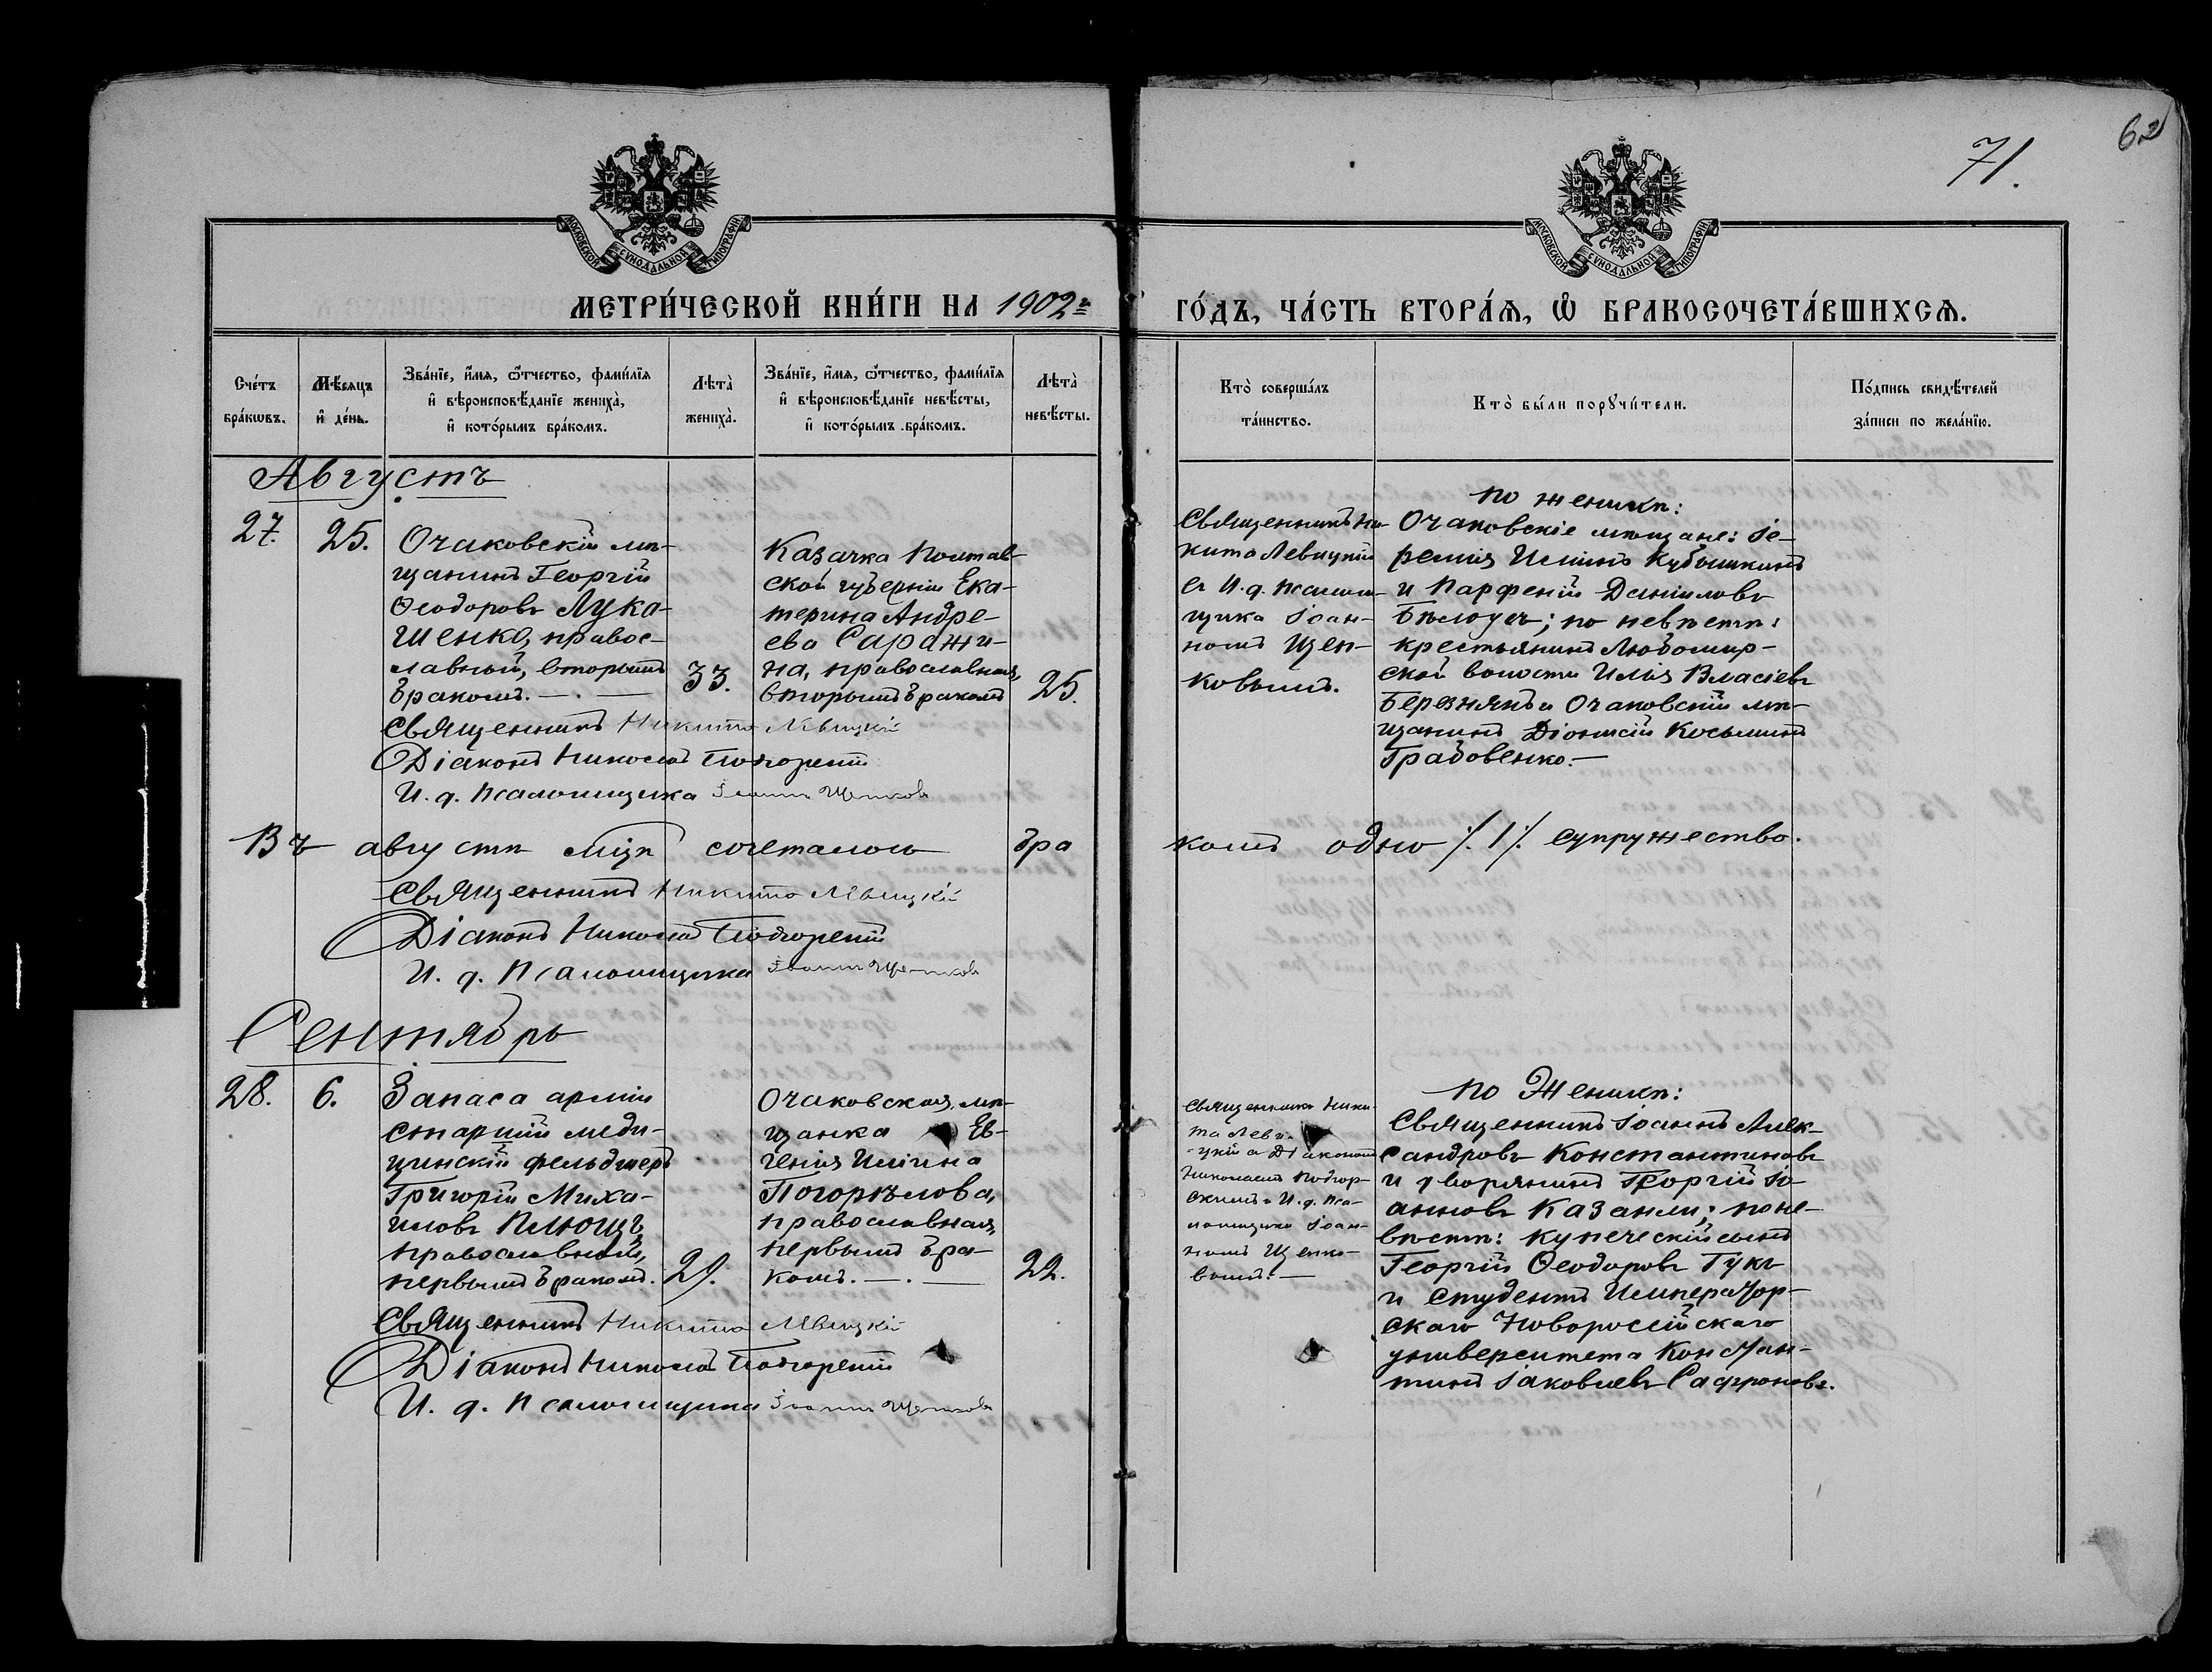 62
71.
МОСКОВСКОЙ СѴНОДАЛЬНОЙ ТИПОГРАФІИ
МОСКОВСКОЙ СѴНОДАЛЬНОЙ ТИПОГРАФІИ
МЕТРИ́ЧЕСКОЙ КНИ́ГИ НА 1902й
ГО́ДЪ, ЧА́СТЬ ВТОРА́Ѧ, Ѽ БРАКОСОЧЕТА́ВШИХСѦ.
Сче́тъ
бра́кѡвъ.
Мѣ́сяцъ
и҆ де́нь.
Зва́нїе, и҆́мѧ, ѻ҆́тчество, фами́лїѧ
и҆ вѣроисповѣ́данїе жениха̀,
и҆ кото́рымъ бра́комъ.
Лѣта̀
жениха̀.
Зва́нїе, и҆́мѧ, ѻ҆́тчество, фами́лїѧ
и҆ вѣроисповѣ́данїе невѣ́сты,
и҆ кото́рымъ бра́комъ.
Лѣта̀
невѣ́сты.
Кто̀ соверша́лъ
та́инство.
Кто̀ бы́ли порꙋчи́тели.
По́дпись свидѣ́телей
за́писи по жела́нїю.
Августъ
27.
25.
Очаковскій мѣ-
щанинъ Георгій
Ѳеодоровъ Лука-
шенко, правос-
лавный, вторымъ
бракомъ. —.—
33.
Казачка Полтав-
ской губерніи Ека-
терина Андре-
ева Саражи-
на, православная,
вторымъ бракомъ
25.
Священникъ Ни-
кита Левицкій
съ И. д. псалом-
щика Іоан-
номъ Щеп-
ковымъ.
по женихѣ:
Очаковскіе мѣщане: Іе-
ремія Илiинъ Кубышкинъ
и Парфеній Даніиловъ
Бѣлоусъ; по невѣстѣ:
крестьянинъ Любомир-
ской волости Илія Власіевъ
Березнякъ и Очаковскій мѣ-
щанинъ Діонисій Косьминъ
Грабовенко.—
Священникъ Никита Левицкій
Діаконъ Николай Подгорскій
И. д. псаломщика Іоаннъ Щепковъ
Въ августѣ мѣцѣ сочеталось бра
комъ одно /. 1 /. супружество.
Священникъ Никита Левицкій
Діаконъ Николай Подгорскій
И. д. псаломщика Іоаннъ Щепковъ
Сентябрь
28.
6.
Запаса арміи
старшій меди-
цинскій фельдшеръ
Григорій Миха-
иловъ Плющъ,
православный,
первымъ бракомъ.
29.
Очаковская мѣ-
щанка Ев-
генія Иліина
Погорѣлова,
православная,
первымъ бра-
комъ. —.—
22.
Священникъ Ники-
та Леви-
цкій съ Діакономъ
Николаемъ Подгор-
скимъ и И. д. пса-
ломщика Іоан-
номъ Щепко-
вымъ.—
по Женихѣ:
Священникъ Іоаннъ Алек-
сандровъ Константиновъ
и дворянинъ Георгій Іо-
анновъ Казанли; по не-
вѣстѣ: купеческій сынъ
Георгій Ѳеодоровъ Гукъ
и студентъ Император-
скаго Новороссійскаго
университета Констан-
тинъ Іаковлевъ Сафроновъ.
Священникъ Никита Левицкій
Діаконъ Николай Подгорскій
И. д. псаломщика Іоаннъ Щепковъ